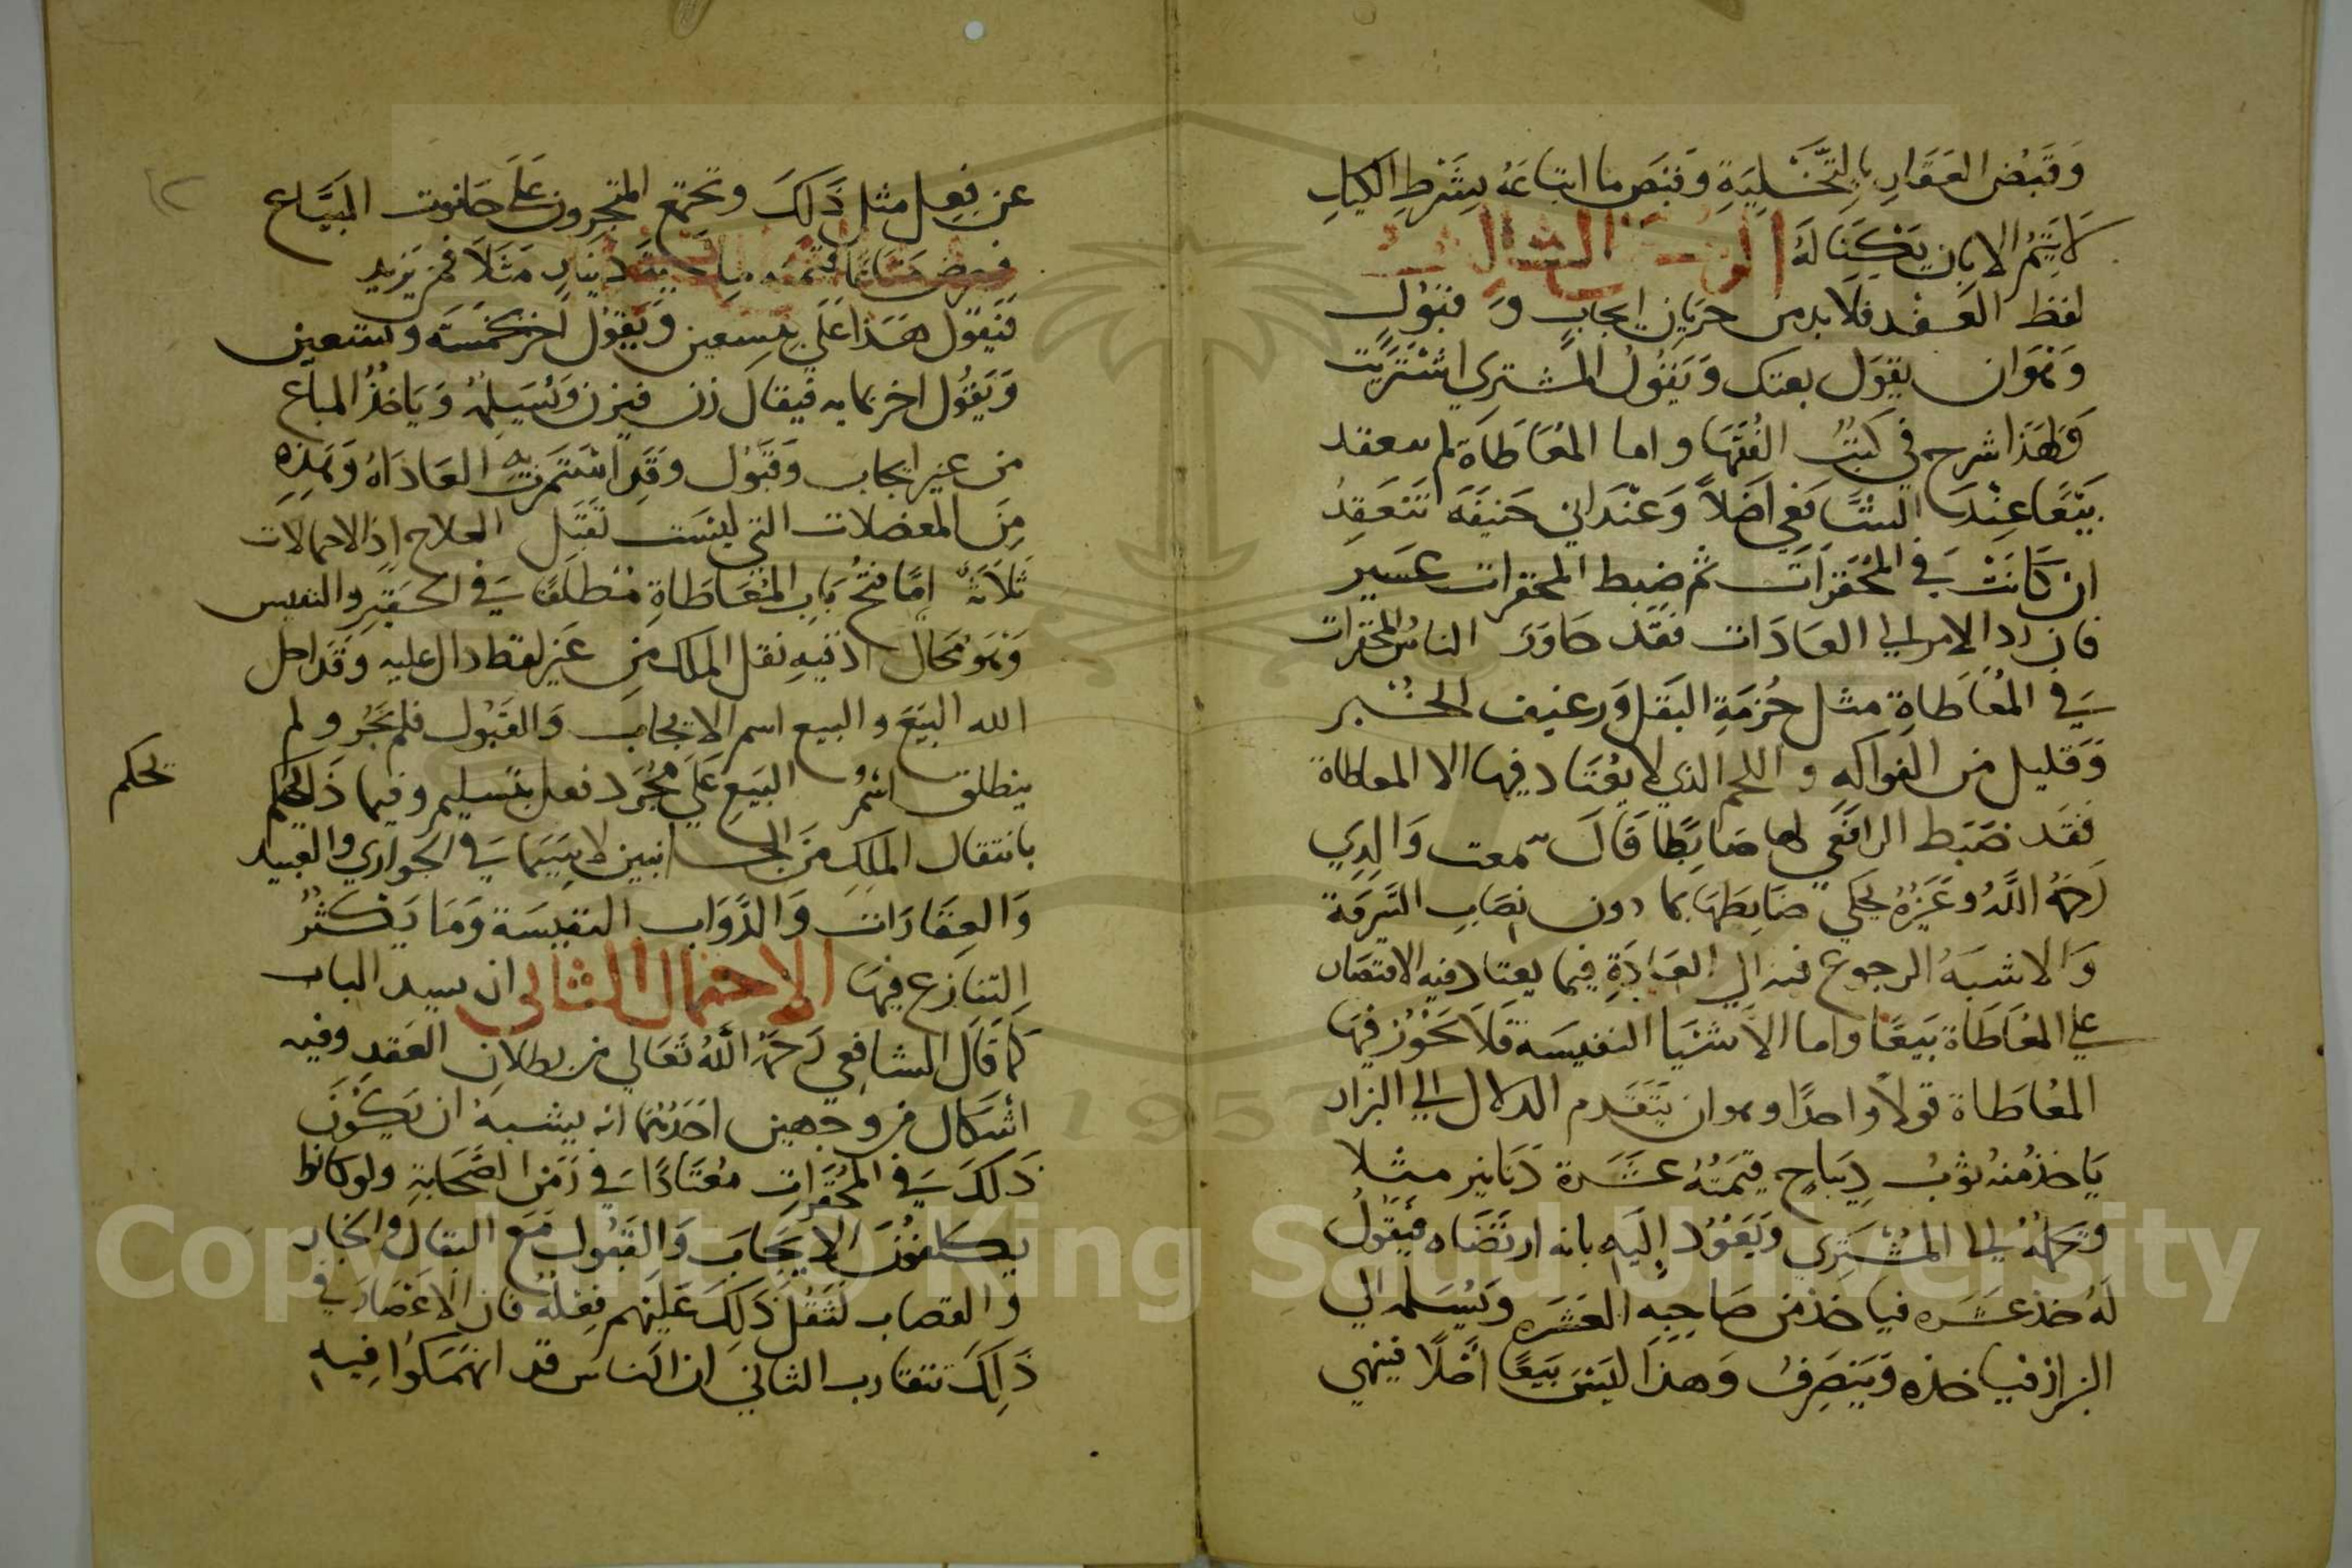 وَقَبْضُ العَقَارِ بِالتَّخْلِيَةِ وَقَبَضَ مَا ابْتَاعَهُ بِشَرْطِ الكَيلِ
لَا يَتِمُّ الا بان يَكْتَالَهُ الركن الثالث
لفظ العقد فلا بد من جريان ايجابٍ وَ قَبُوْلٍ
وَهُوَ ان يقوَل بعتك وَيَقُولُ المشتري اشْتَرَيْت
وَلهَذا شرح في كُتُب الفُقَهَا واما المُعَاطَاة لم ينعقد
بَيْعًا عِنْدَ الشَّافِعِي اَصْلاً وَعِنْدَ ابي حَنيفَة تَنْعَقِدُ
ان كَانَتْ فِي المُحَقَّرَاتَ ثم ضبط المحقرات عَسَير
فان رد الامر الى العَادَات فقَد جاوَز الناسُ المحقرات
فِي المُعَاطَاةِ مثل حُزمَةِ البَقَل وَرغيف الخُبز
وَقليل من الفواكه و اللحم الذي لا يُعْتَاد فيها الا المعاطاة
فقَد ضَبَط الرافعَي لها ضَابِطًا قَالَ سمعت وَالِدِي
رَحِمَهُ اللَّهُ وَغَيْرَهُ يَحكي ضَابِطهَا بما دون نِصَابِ السَّرِقَة
وَالاشبَهُ الرجوع فيه الى العَادَةِ فيما يعتاد فيه الاقتصار
علي المُعَاطَاة بَيعًا واما الاَشْيَا النفيسَة فَلَا يَجُوْز فيهَا
المُعَاطَاة قولاً واحدًا وهو ان يَتَقَدم الدلال الي البزاز
يَاخذ منه ثوبُ دِيبَاج قِيمَتُهُ عَشَرة دَنَانير مثلا
وَيحملُهُ الى المُشْتَرِي وَيَعُوْد اِلَيهِ بانه ارتضَاه فَيَقُولُ
لَهُ خذ عَشَره فياخذ من صَاحِبِهِ العَشَره وَيُسَلمه الي
البزاز فياخذه وَيَنصَرِفُ وَهذَا لَيسَ بَيعًا اَصْلًا فينهي
عن فِعل مثل ذَلكَ وتجتمع المتجرون عَلَي حَانوت البَيَّاع
فَيَقول هَذا عَلَي بتِسعين وَيَقُول اخر بخمسَة وتسعين
وَيَقُول اخر بمايه فيقال زن فيزن وَيُسَلِمُ وَيَاخذُ المباع
من غير ايجاب وَقَبُول وَقَدِ اسْتَمَرت به العَادَاهُ وَهذِهِ
مِنَ المعضلات التي ليسَت تَقبَل العلاج اذ الاحتمالات
ثَلاثَةٌ اِمَّا فتحُ بَابِ المُعَاطَاةِ مُطلَقًا فِي الحَقِيرِ والنفيس
وَهوَ مُحَالٌ اذ فيهِ نقل الملك مِن غَيرِ لفظ دال عليه وَقَد احل
الله البَيعَ والبيع اسم الايجاب وَالقَبُول فلم يَجُر ولم
ينطلق اسْمُ البَيعِ عَلَي مُجَرد فعل بتَسليم وفيما ذَا يحكم
يحكم
بانتقال المِلكِ مَنَ الجانبين لا سِيَّمَا فِي الجَوارِي والعبيد
وَالعقَارَات وَالدَّوَاب النفيسَة وَمَا يَكثرُ
التنازع فِيهَا الاحتمال الثاني ان يسد الباب
كَمَا قَال الشافعي رَحمَهُ اللهُ تعَالي من بطلان العَقدِ وفيه
اشكال من وجهين اَحَدُهُمَا انه يشبهُ ان يَكُوْنَ
ذَلكَ فِي المُحَقَّراتِ مُعتَادًا فِي زَمَنِ الصَّحَابَةِ ولو كانوا
يكلفُونَ الايجَاب وَالقَبُول مَعَ البقال والخباز
والقصاب لثَقُل ذَلِكَ عَليَهم فِعلُهُ فان الاَعْصَار في
ذَلِكَ تتقارب الثاني ان الناسَ قد انهَمَكُوا فِيهِ